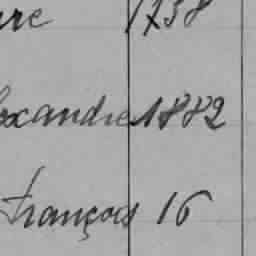 1738
exandre 1882
François 16